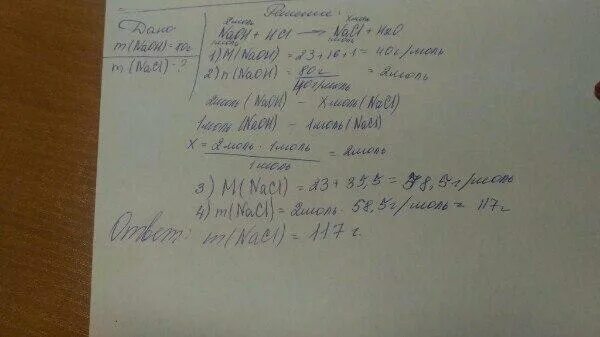 Решение:
Дано
m(NaOH) - 80г
m(NaCl) - ?
2моль хмоль
NaOH + HCl → NaCl + H2O
1моль 1моль
1) M(NaOH) = 23+16+1 = 40г/моль
2) n(NaOH) = 80г / 40г/моль = 2моль
2моль (NaOH) - Xмоль (NaCl)
1моль (NaOH) - 1моль (NaCl)
X = 2моль · 1моль / 1моль = 2моль
3) M(NaCl) = 23 + 35,5 = 58,5г/моль
4) m(NaCl) = 2моль · 58,5г/моль = 117г
Ответ: m(NaCl) = 117г.